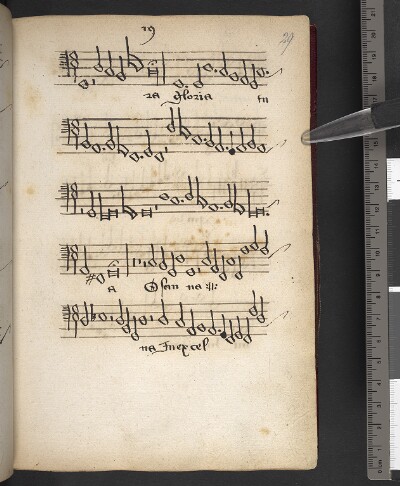 19
29
ra gloria tu
a Osan na :||:
na Inexcel